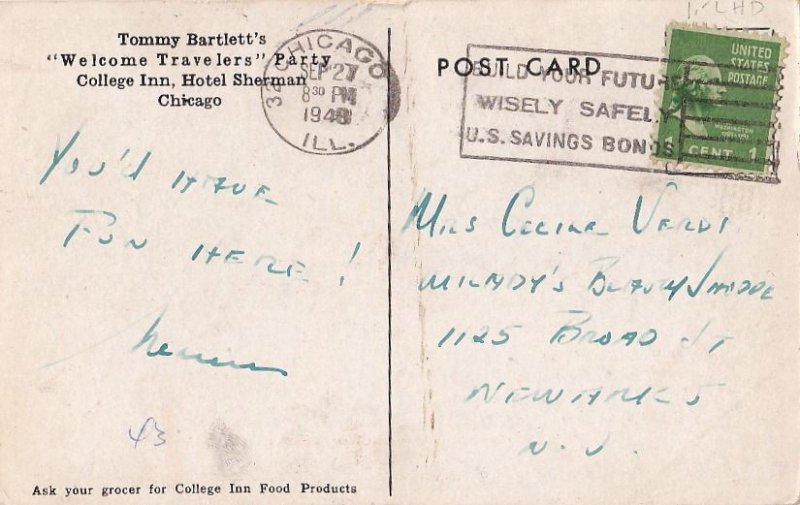 Tommy Bartlett's
"Welcome Travelers" Party
College Inn, Hotel Sherman
Chicago
CHICAGO
SEP 27
8 30 PM
1948
ILL.
POST CARD
BUILD YOUR FUTURE
WISELY SAFELY
U.S. SAVINGS BONDS
UNITED
STATES
POSTAGE
WASHINGTON
1 CENT 1
YOU'D HAVE
FUN HERE!
43
MRS CECILE VERDI
MILADY'S BEAUTY SHOPPE
1125 BROAD ST
NEWARK 5
N.J.
Ask your grocer for College Inn Food Products